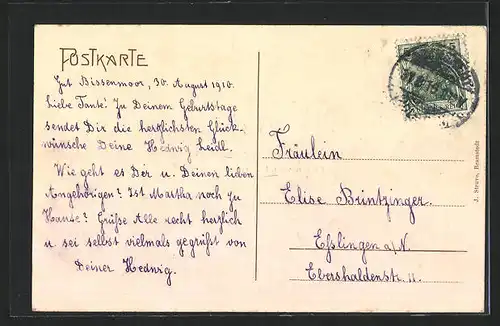 POSTKARTE
Gut Bissenmoor, 30. August 1910.
Liebe Tante! Zu Deinem Geburtstage
sendet Dir die herzlichsten Glück-
wünsche Deine Hedwig Leidl.
Wie geht es Dir u. Deinen lieben
Angehörigen? Ist Martha noch zu
Hause? Grüße Alle recht herzlich
u. sei selbst vielmals gegrüßt von
Deiner Hedwig.
Fräulein
Elise Brintzinger.
Eßlingen a/N.
Ebershaldenstr. 11.
J. Struve, Bramstedt